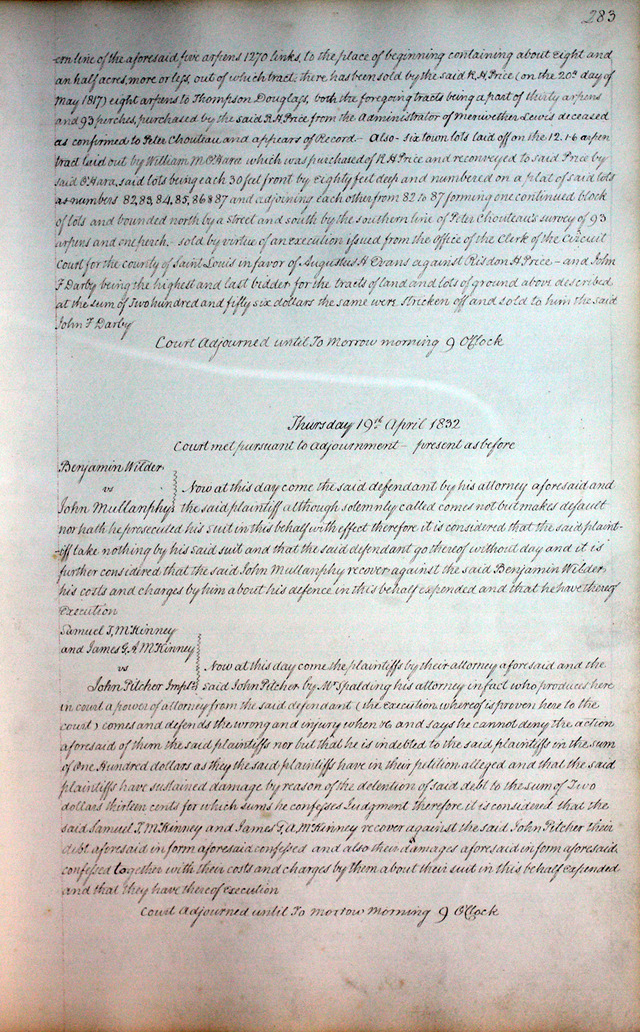 283
ern line of the aforesaid five arpens 1270 links, to the place of beginning containing about Eight and
an half acres, more or less, out of which tract, there has been sold by the said R. H. Price (on the 20th day of
May 1817) eight arpens to Thompson Douglass, both the foregoing tracts being a part of thirty arpens
and 93 perches, purchased by the said R. H. Price from the Administrator of Meriwether Lewis deceased
as confirmed to Peter Chouteau and appears of Record - Also - six town lots laid off on the 12.1.6 arpen
tract laid out by William M. O'Hara which was purchased of R. H. Price and reconveyed to said Price by
said O'Hara, said lots being each 30 feet front by eighty feet deep and numbered on a plat of said lots
as numbers 82, 83, 84, 85, 86 & 87 and adjoining each other from 82 to 87 forming one continued block
of lots and bounded north by a street and south by the southern line of Peter Chouteau's survey of 93
arpens and one perch - sold by virtue of an execution issued from the Office of the Clerk of the Circuit
Court for the county of Saint Louis in favor of Augustus H Evans against Risdon H Price - and John
F Darby being the highest and last bidder for the tracts of land and lots of ground above described
at the sum of Two hundred and fifty six dollars the same were stricken off and sold to him the said
John F Darby
Court Adjourned until To Morrow morning 9 O'Clock
Thursday 19th April 1832
Court met pursuant to adjournment - present as before
Benjamin Wilder
vs Now at this day come the said defendant by his attorney aforesaid and
John Mullanphy the said plaintiff although solemnly called comes not but makes default
nor hath he prosecuted his suit in this behalf with effect therefore it is considered that the said plaint-
iff take nothing by his said suit and that the said defendant go thereof without day and it is
further considered that the said John Mullanphy recover against the said Benjamin Wilder
his costs and charges by him about his defence in this behalf expended and that he have thereof
Execution
Samuel T, McKinney
and James G. A McKinney
vs Now at this day come the plaintiffs by their attorney aforesaid and the
John Pitcher Impld said John Pitcher by Mr Spalding his attorney in fact who produces here
in court a power of attorney from the said defendant (the execution whereof is proven here to the
court) comes and defends the wrong and injury when &c and says he cannot deny the action
aforesaid of them the said plaintiffs nor but that he is indebted to the said plaintiffs in the sum
of One Hundred dollars as they the said plaintiffs have in their petition alleged and that the said
plaintiffs have sustained damage by reason of the detention of said debt to the sum of Two
dollars thirteen cents for which sums he confesses Judgment therefore it is considered that the
said Samuel T, McKinney and James G, A, McKinney recover against the said John Pitcher their
debt aforesaid in form aforesaid confessed and also their damages aforesaid in form aforesaid
confessed together with their costs and charges by them about their suit in this behalf expended
and that they have thereof execution
Court Adjourned until To Morrow Morning 9 O'Clock